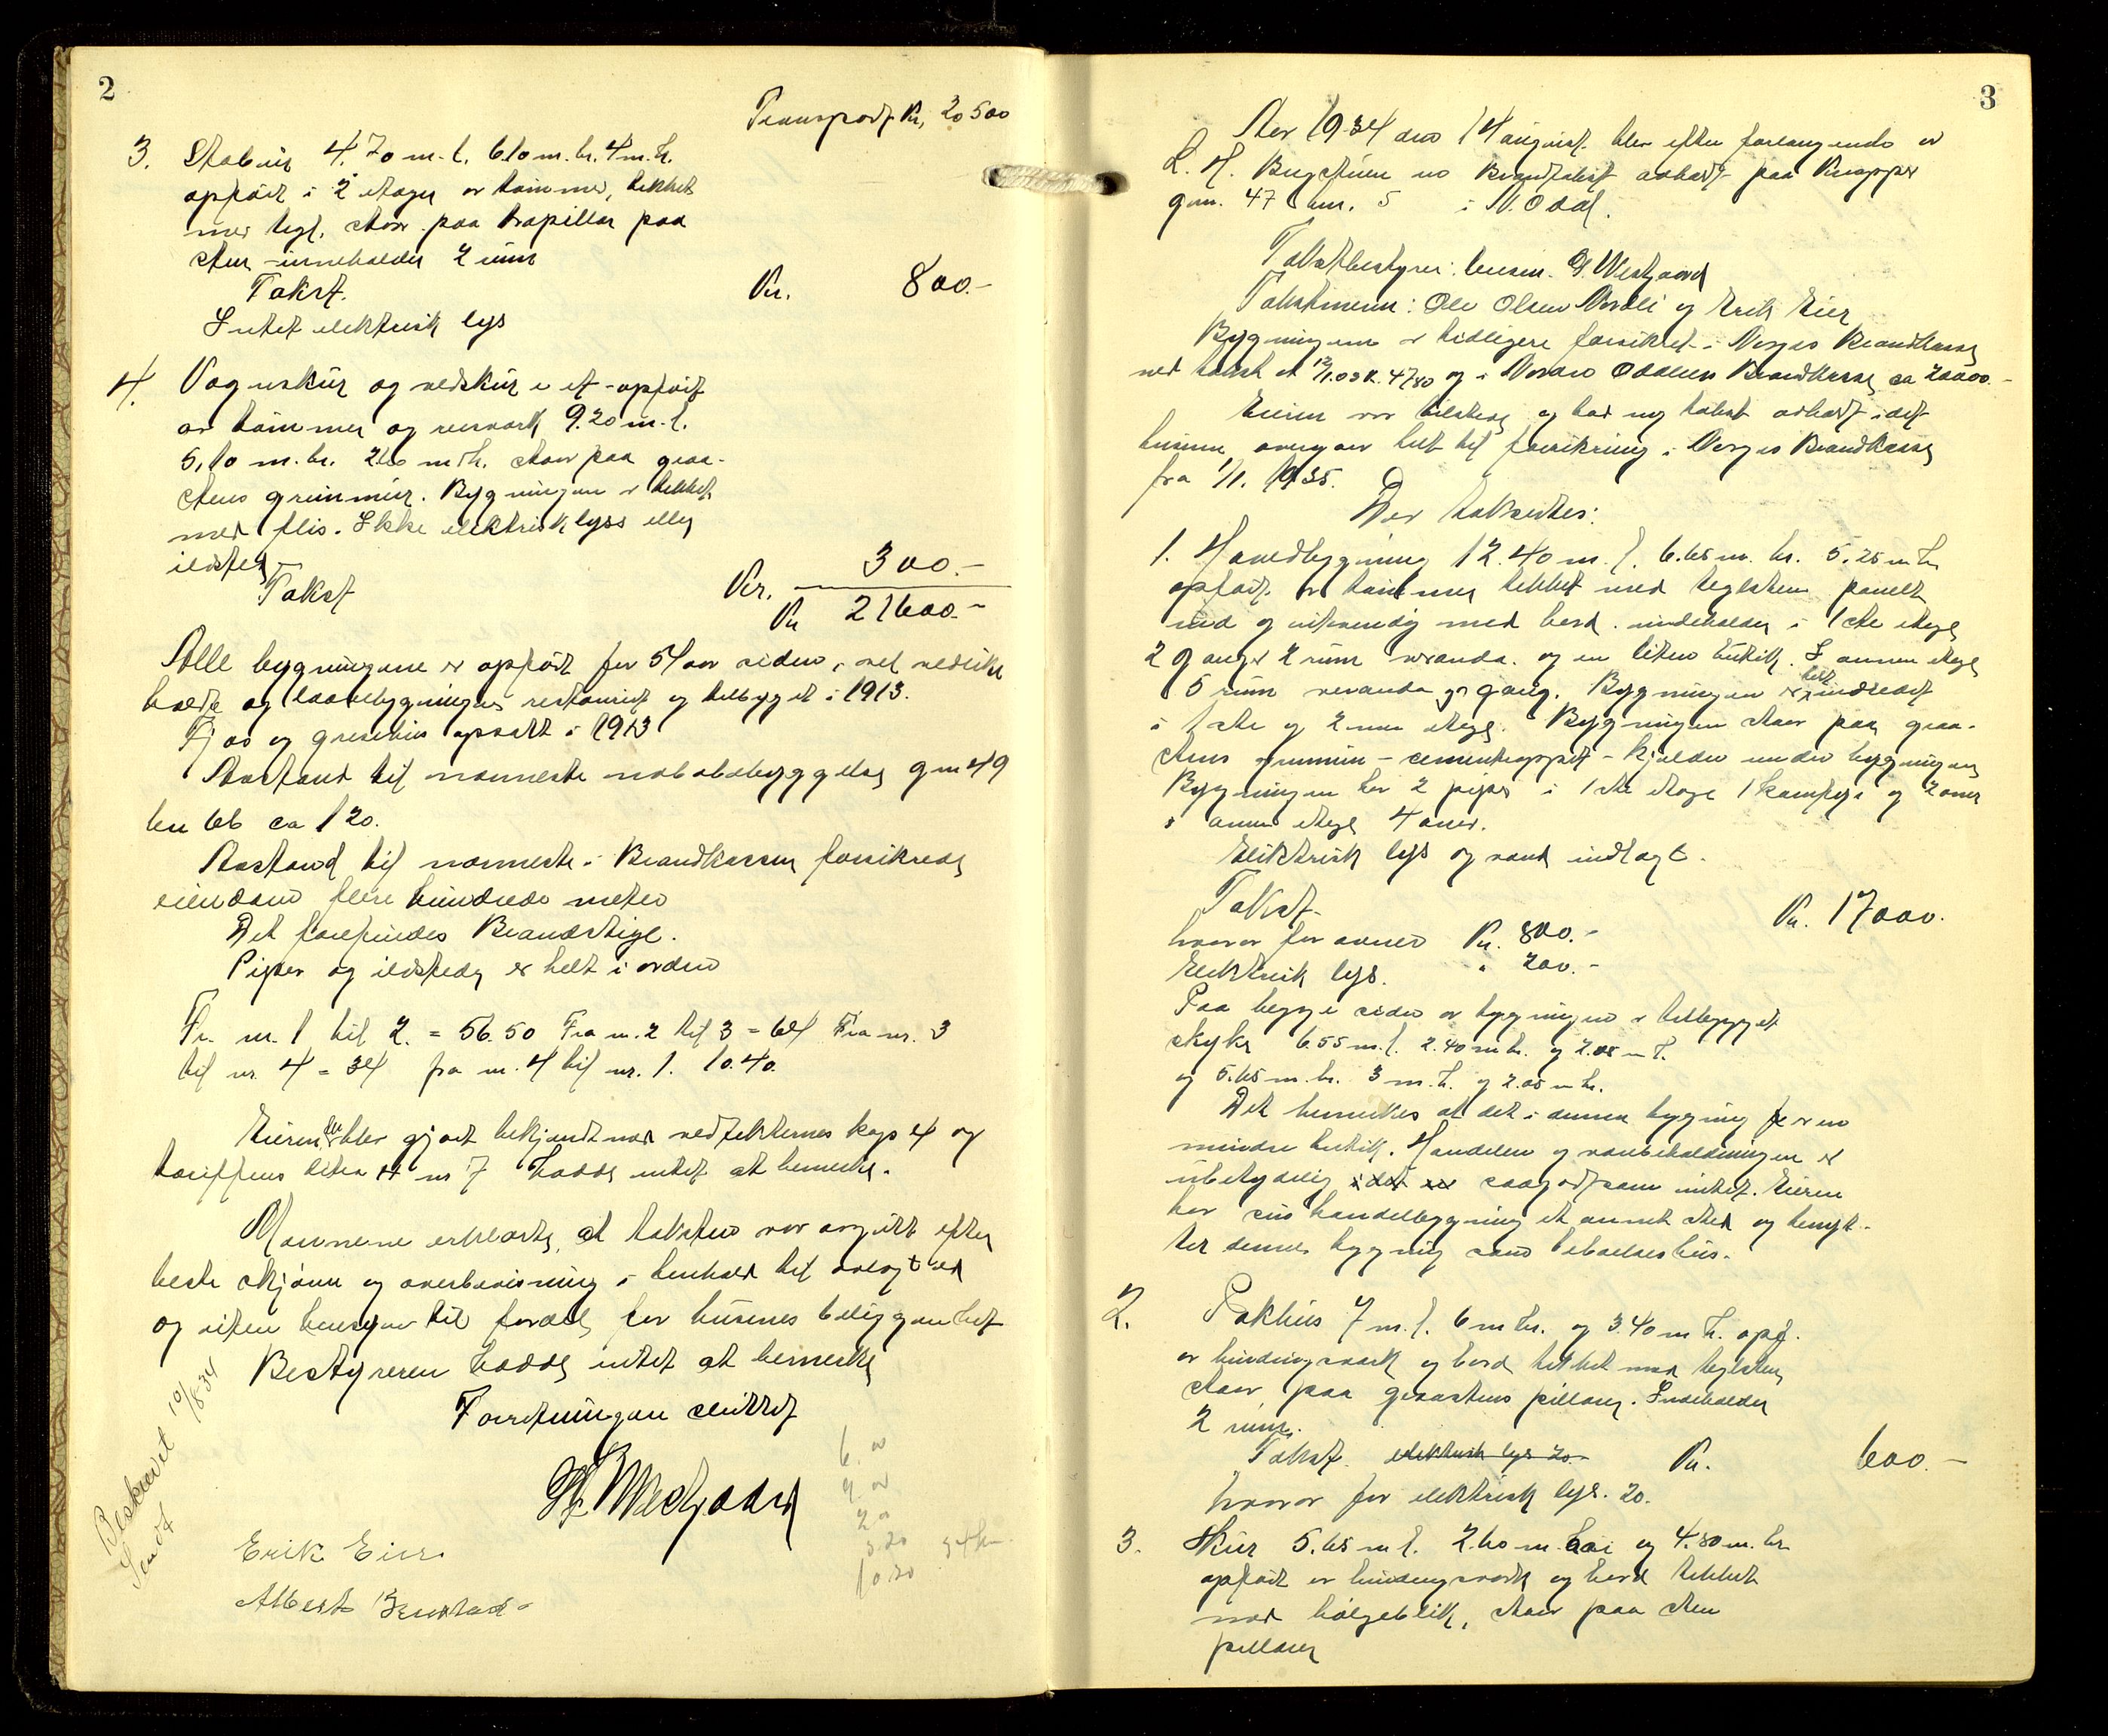 2
Transport Kr, 20500
3. Stabur 4.70 m.l. 6.10 m.br. 4 m.h.
opført i 2 etager av tømmer, tekket
med tegl, staar paa træpillar paa
sten inneholder 2 rum
Takst. Kr. 800.-
Intet elektrisk lys
4. Vognskur og vedskur i et - opført
av tømmer og reisverk 9.20 m.l.
5,10 m.br. 2.60 m h. staar paa graa-
stens grunmur. Bygningen er tekket
med flis. Ikke elektrisk lyss eller
ildsted
Takst Kr. 300.-
Kr 21600.-
Alle bygningene er opført for 54 aar siden, vel vedlike
holdt og laavebygningen restaurert og tilbygget i 1913.
Fjøs og grisehus opsatt i 1913
Avstand til nærmeste nabobebyggelse gnr 49
bn 66 ca 120.
Avstand til nærmeste i Brandkassen forsikrede
eiendom flere hundrede meter
Det forefindes Brandstige.
Piper og ildsteder er helt i orden
Fr. nr. 1 til 2. = 56.50 Fra nr. 2 til 3 = 64 Fra nr. 3
til nr. 4 = 34 fra nr. 4 til nr. 1. 10.40.
Eieren blev gjort bekjendt med vedtekternes kap 4 og
tariffens litra H nr 7 hadde intet at bemerke.
Mænnene erklærte, at taksten var avgitt efter
beste skjønn og overbevisning i henhold til avlagt ed
og uten hensyn til fordel for husenes beliggenhet
Bestyreren hadde intet at bemerke
Forretningen sluttet
G. Westgaard
Beskrevet 10/8 34
Sendt
6.00
9.00
2.00
3.20 34 km
10.20
Erik Eier
Albert
3
Aar 1934 den 14 august blev efter forlangende av
L. H. en Brandtakst avholdt paa Knapper
gnr. 47 bnr. 5 i N. Odal.
Takstbestyrer: Lensm. G. Westgaard
Takstmenn: Ole Olsen Nordli og Erik Eier
Bygningene er tidligere forsikret i Norges Brandkasse
ved takst at 12/1.03 K. 4780 og i Nordre Odalens Brandkasse ca 20000.-
Eieren var tilstede og bad ny takst avholdt idet
husene overgaar helt til forsikring i Norges Brandkasse
fra 1/1. 1935.
Der taksertes:
1. Hovedbygning 12.40 m.l. 6.65 m. br. 5.25 m h
opført av tømmer tekket med teglsten panelt
ind og utvendig med bord. indeholder i 1ste etage
2 ganger 2 rum veranda og en liten butikk. I annen etage
5 rum veranda og gang. Bygningen er helt indredet
i 1ste og 2nen etage. Bygningen staar paa graa-
stens grunmur - cementroppet - kjelder under bygningen
Bygningen har 2 piper i 1ste etage 1 komfyr og 2 ovner
i annen etage 4 ovner.
Elektrisk lys og vand indlagt.
Takst Kr. 17000.
hvorav for ovner Kr. 800.-
Elektrisk lys. " 200.-
Paa begge sider av bygningen er tilbygget
skykr 6.55 m.l. 2.40 m br. og 2.05 m h.
og 5.65 m. br. 3 m.h. og 2.05 m h.
Det bemerkes at det i denne bygning er en
mindre butikk. Handelen og varebeholdningen er
ubetydelig saagodtsom intet. Eieren
har sin handelbygning et annet sted og benyt-
ter denne bygning som beboelseshus.
2. Pakhus 7 m.l. 6 m br. og 3.40 m h. opf.
av bindingsverk og bord tekket med teglsten
staar paa graastens pillarer. Indeholder
2 rum.
Takst. elektrisk lys 20.- Kr. 600.-
hvorav for elektrisk lys. 20.
3. Skur 5.65 m l. 2.60 m. høi og 4.80 m. br
opført av bindingsverk og bord tekket
med bølgeblikk, staar paa sten
pillarer